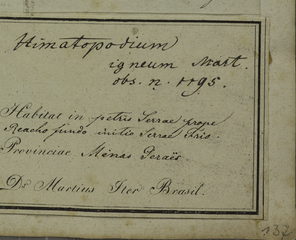 Himatopodium
igneum Mart.
obs. n. 1195.
Habitat in petris Serrae prope
Riacho fundo initio Serrae
Provinciae Minas Geraës
Dr Martius Iter Brasil.
132